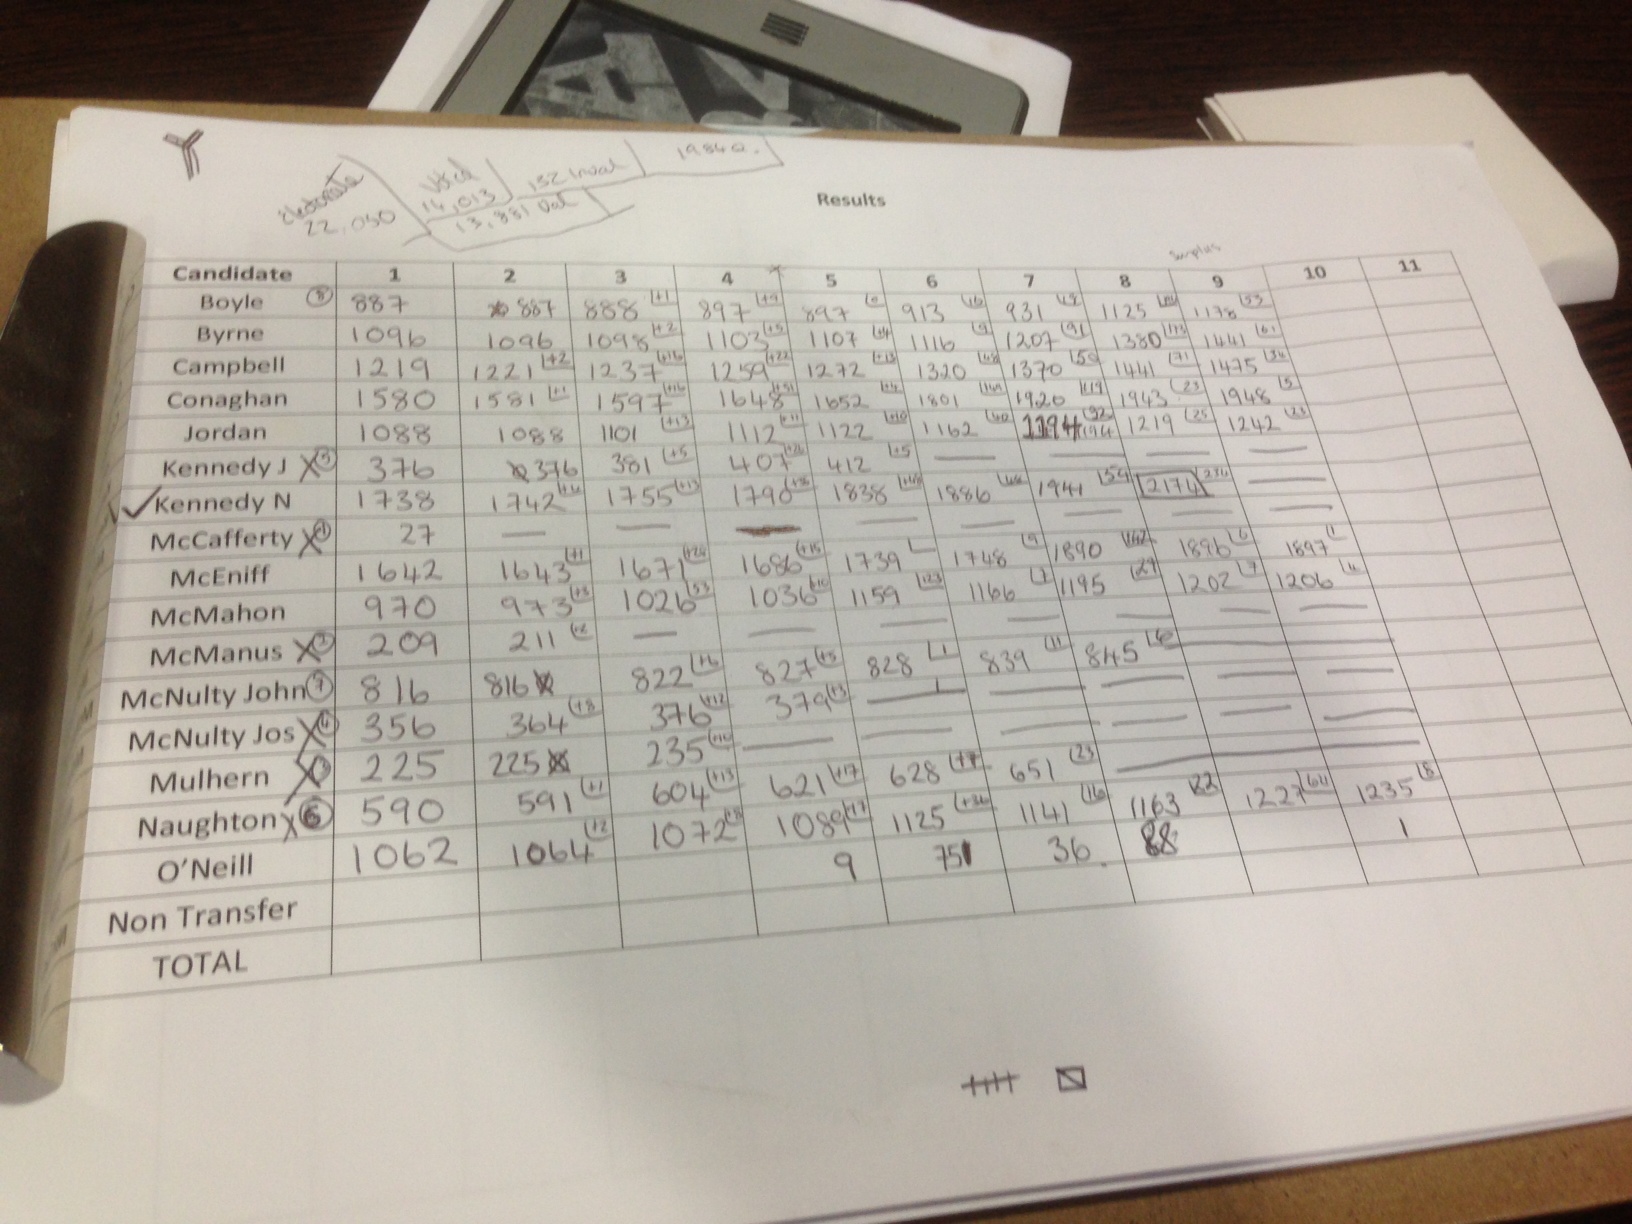 Electorate 22,050
Voted 14,013
132 Inval
1984 Q.
13,881 Val
Results
Surplus
Candidate 1 2 3 4 5 6 7 8 9 10 11
Boyle 8 887 887 888 +1 897 +9 897 0 913 16 931 18 1125 1178 53
Byrne 1096 1096 1098 +2 1103 +5 1107 +4 1116 9 1207 91 1380 173 1441 61
Campbell 1219 1221 +2 1237 +16 1259 +22 1272 +13 1320 48 1370 50 1441 71 1475 34
Conaghan 1580 1581 +1 1597 +16 1648 +51 1652 +4 1801 149 1920 119 1943 23 1948 5
Jordan 1088 1088 1101 +13 1112 +11 1122 +10 1162 40 1194 32 1194 1219 25 1242 23
Kennedy J X 5 376 376 381 +5 407 +26 412 +5 — — — —
✓ Kennedy N 1738 1742 +4 1755 +13 1790 1838 +48 1886 1941 2174 —
McCafferty X 1 27 — — — — — — — —
McEniff 1642 1643 +1 1671 1686 +15 1739 1748 9 1890 142 1896 6 1897 1
McMahon 970 973 +3 1026 53 1036 +10 1159 123 1166 7 1195 29 1202 7 1206 4
McManus X 2 209 211 +2 — — — — — —
McNulty John 7 816 816 822 +6 827 +5 828 1 839 11 845 6
McNulty Jos X 4 356 364 +8 376 +12 379 +3 — — — — —
Mulhern X 225 225 235 +10 — — — — — —
Naughton X 6 590 591 +1 604 +13 621 +17 628 +7 651 23
O'Neill 1062 1064 +2 1072 +8 1089 +17 1125 +36 1141 16 1163 22 1227 64 1235 8
Non Transfer 9 36 88 1
TOTAL